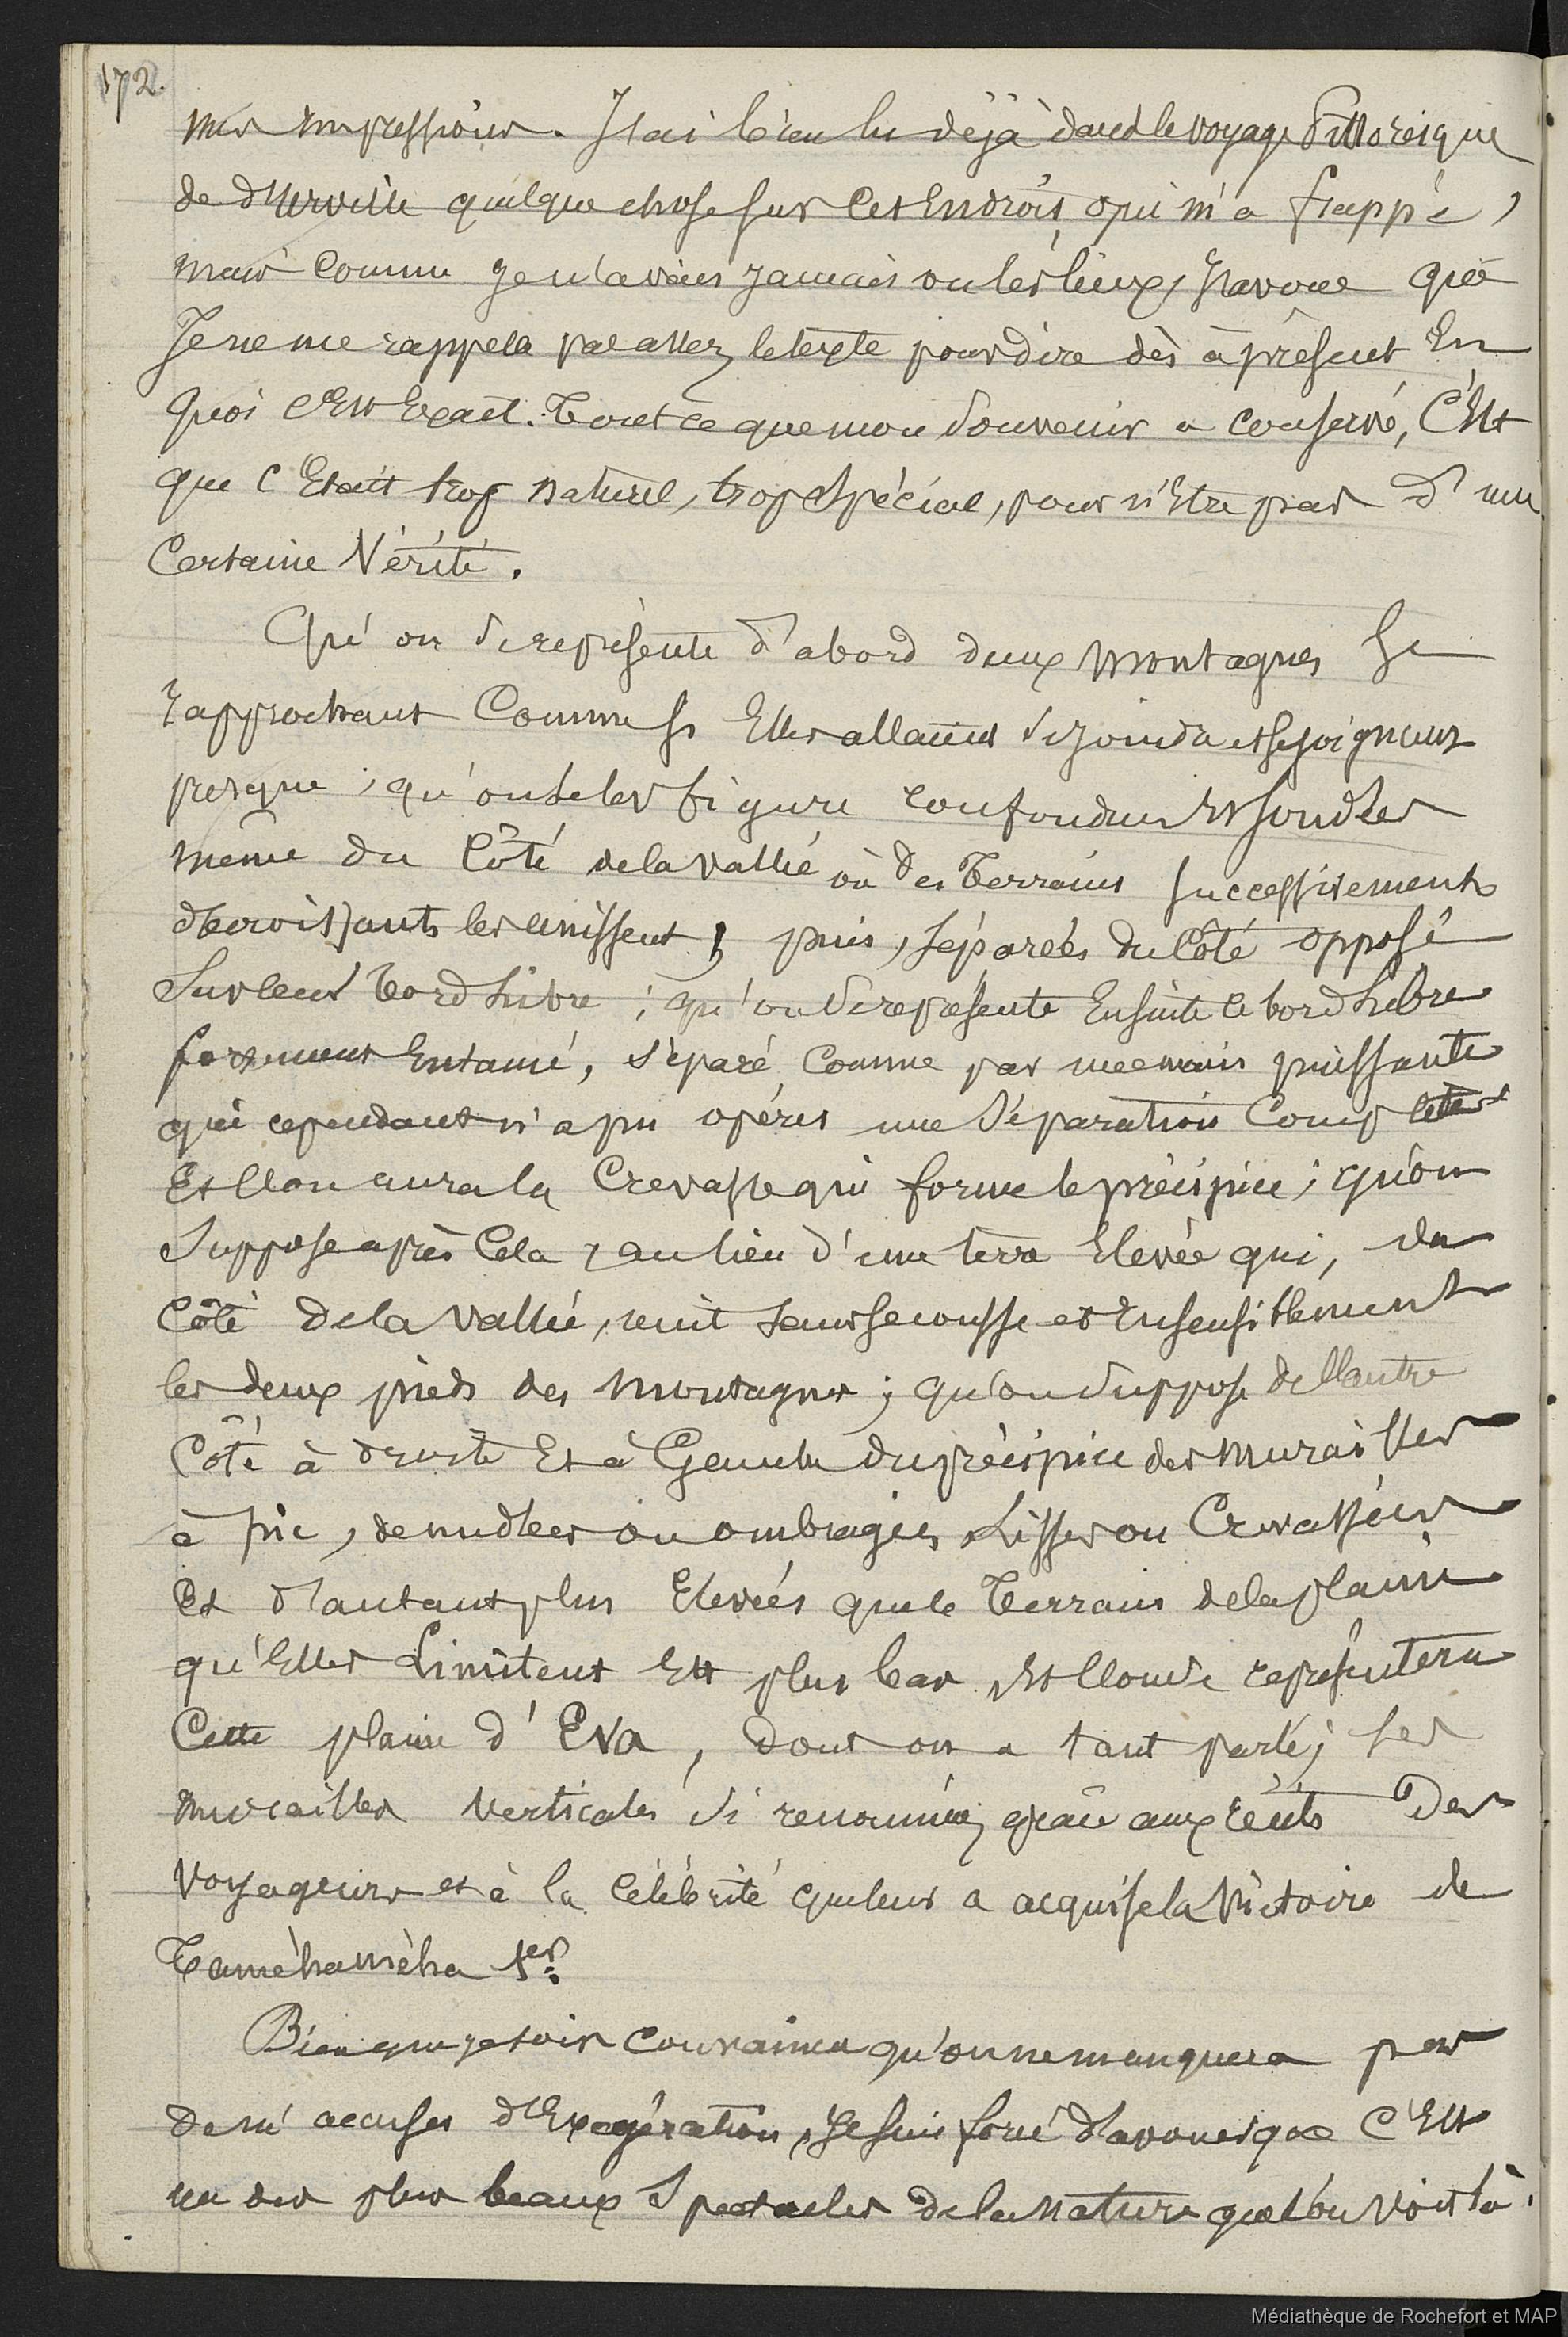 172.
mes impressions. J'ai bien lu déjà dans le voyage Pittoresque
de d'Urville quelque chose sur cet Endroit, qui m'a frappé,
mais comme je n'avais jamais vu les lieux, J'avoue que
Je ne me rappele pas assez le texte pour dire dès à présent En
quoi c'Est Exact. Tout ce que mon Souvenir a conservé, C'Est
que c'Etait trop naturel, trop Spécial, pour n'Etre pas d'une
Certaine Vérité.
Qu'on Se représente d'abord deux Montagnes Se
rapprochant Comme si Elles allaient Se joindre et Se joignant
presque ; qu'on Se les figure confondues Et soudées
même du Côté de la Vallée où des Terrains successivement
décroissants les unissent ; puis, séparées du Côté opposé
Sur leur bord Libre ; qu'on Se représente Ensuite le bord Libre
fortement Entamé, séparé comme par une main puissante
qui cependant n'a pu opérer une Séparation Complète
Et l'on aura la Crevasse qui forme le précipice ; qu'on
Suppose après Cela, au lieu d'une terre Elevée qui, du
Côté de la Vallée, unit sans secousse et Insensiblement
les deux pieds des montagnes ; qu'on Suppose de l'autre
Côté à droite Et à Gauche du précipice des murailles
à pic, denudées ou ombragées, Lisses ou Crevassées
Et d'autant plus Elevées que le Terrain de la plaine
qu'Elles Limitent Est plus bas, Et l'on Se représentera
Cette plaine d'Eva, dont on a tant parlé, ses
murailles verticales Si renommées, grâce aux récits Des
Voyageurs et à la célébrité que leur a acquise la Victoire de
Taméhaméha 1er.
Bien que je sois convaincu qu'on ne manquera pas
de m'accuser d'Exagération, Je suis forcé d'avouer que C'Est
un des plus beaux Spectacles de la Nature que l'on voit là.
Médiathèque de Rochefort et MAP